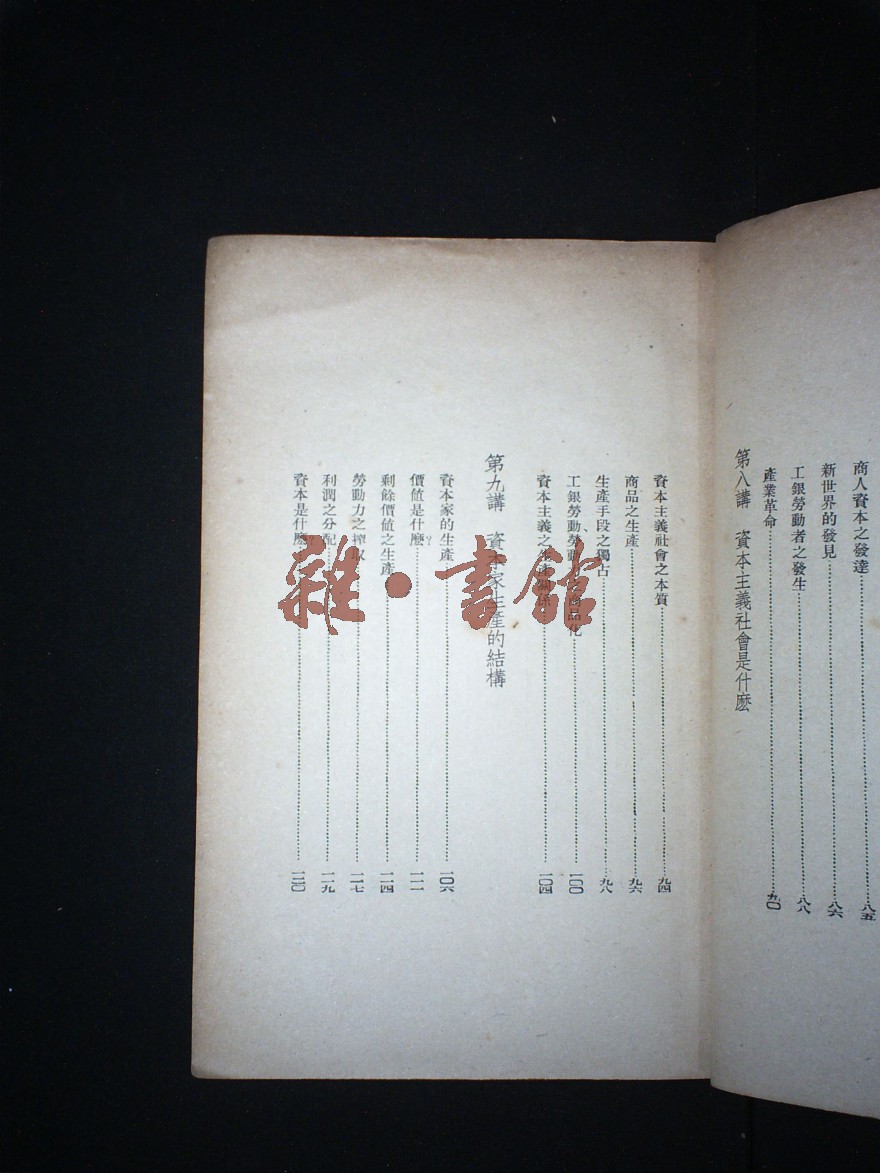 商人資本之發達……八五
新世界的發見……八六
工銀勞動者之發生……八八
產業革命……九〇
第八講 資本主義社會是什麽
資本主義社會之本質……九四
商品之生產……九六
生產手段之獨占……九八
工銀勞動、勞動之商品化……一〇〇
資本主義之生產關係……一〇四
第九講 資本家生產的結構
資本家的生產……一〇六
價值是什麽?……一一一
剩餘價值之生產……一一四
勞動力之搾取……一一七
利潤之分配……一一九
資本是什麽?……一二〇
雜·書館